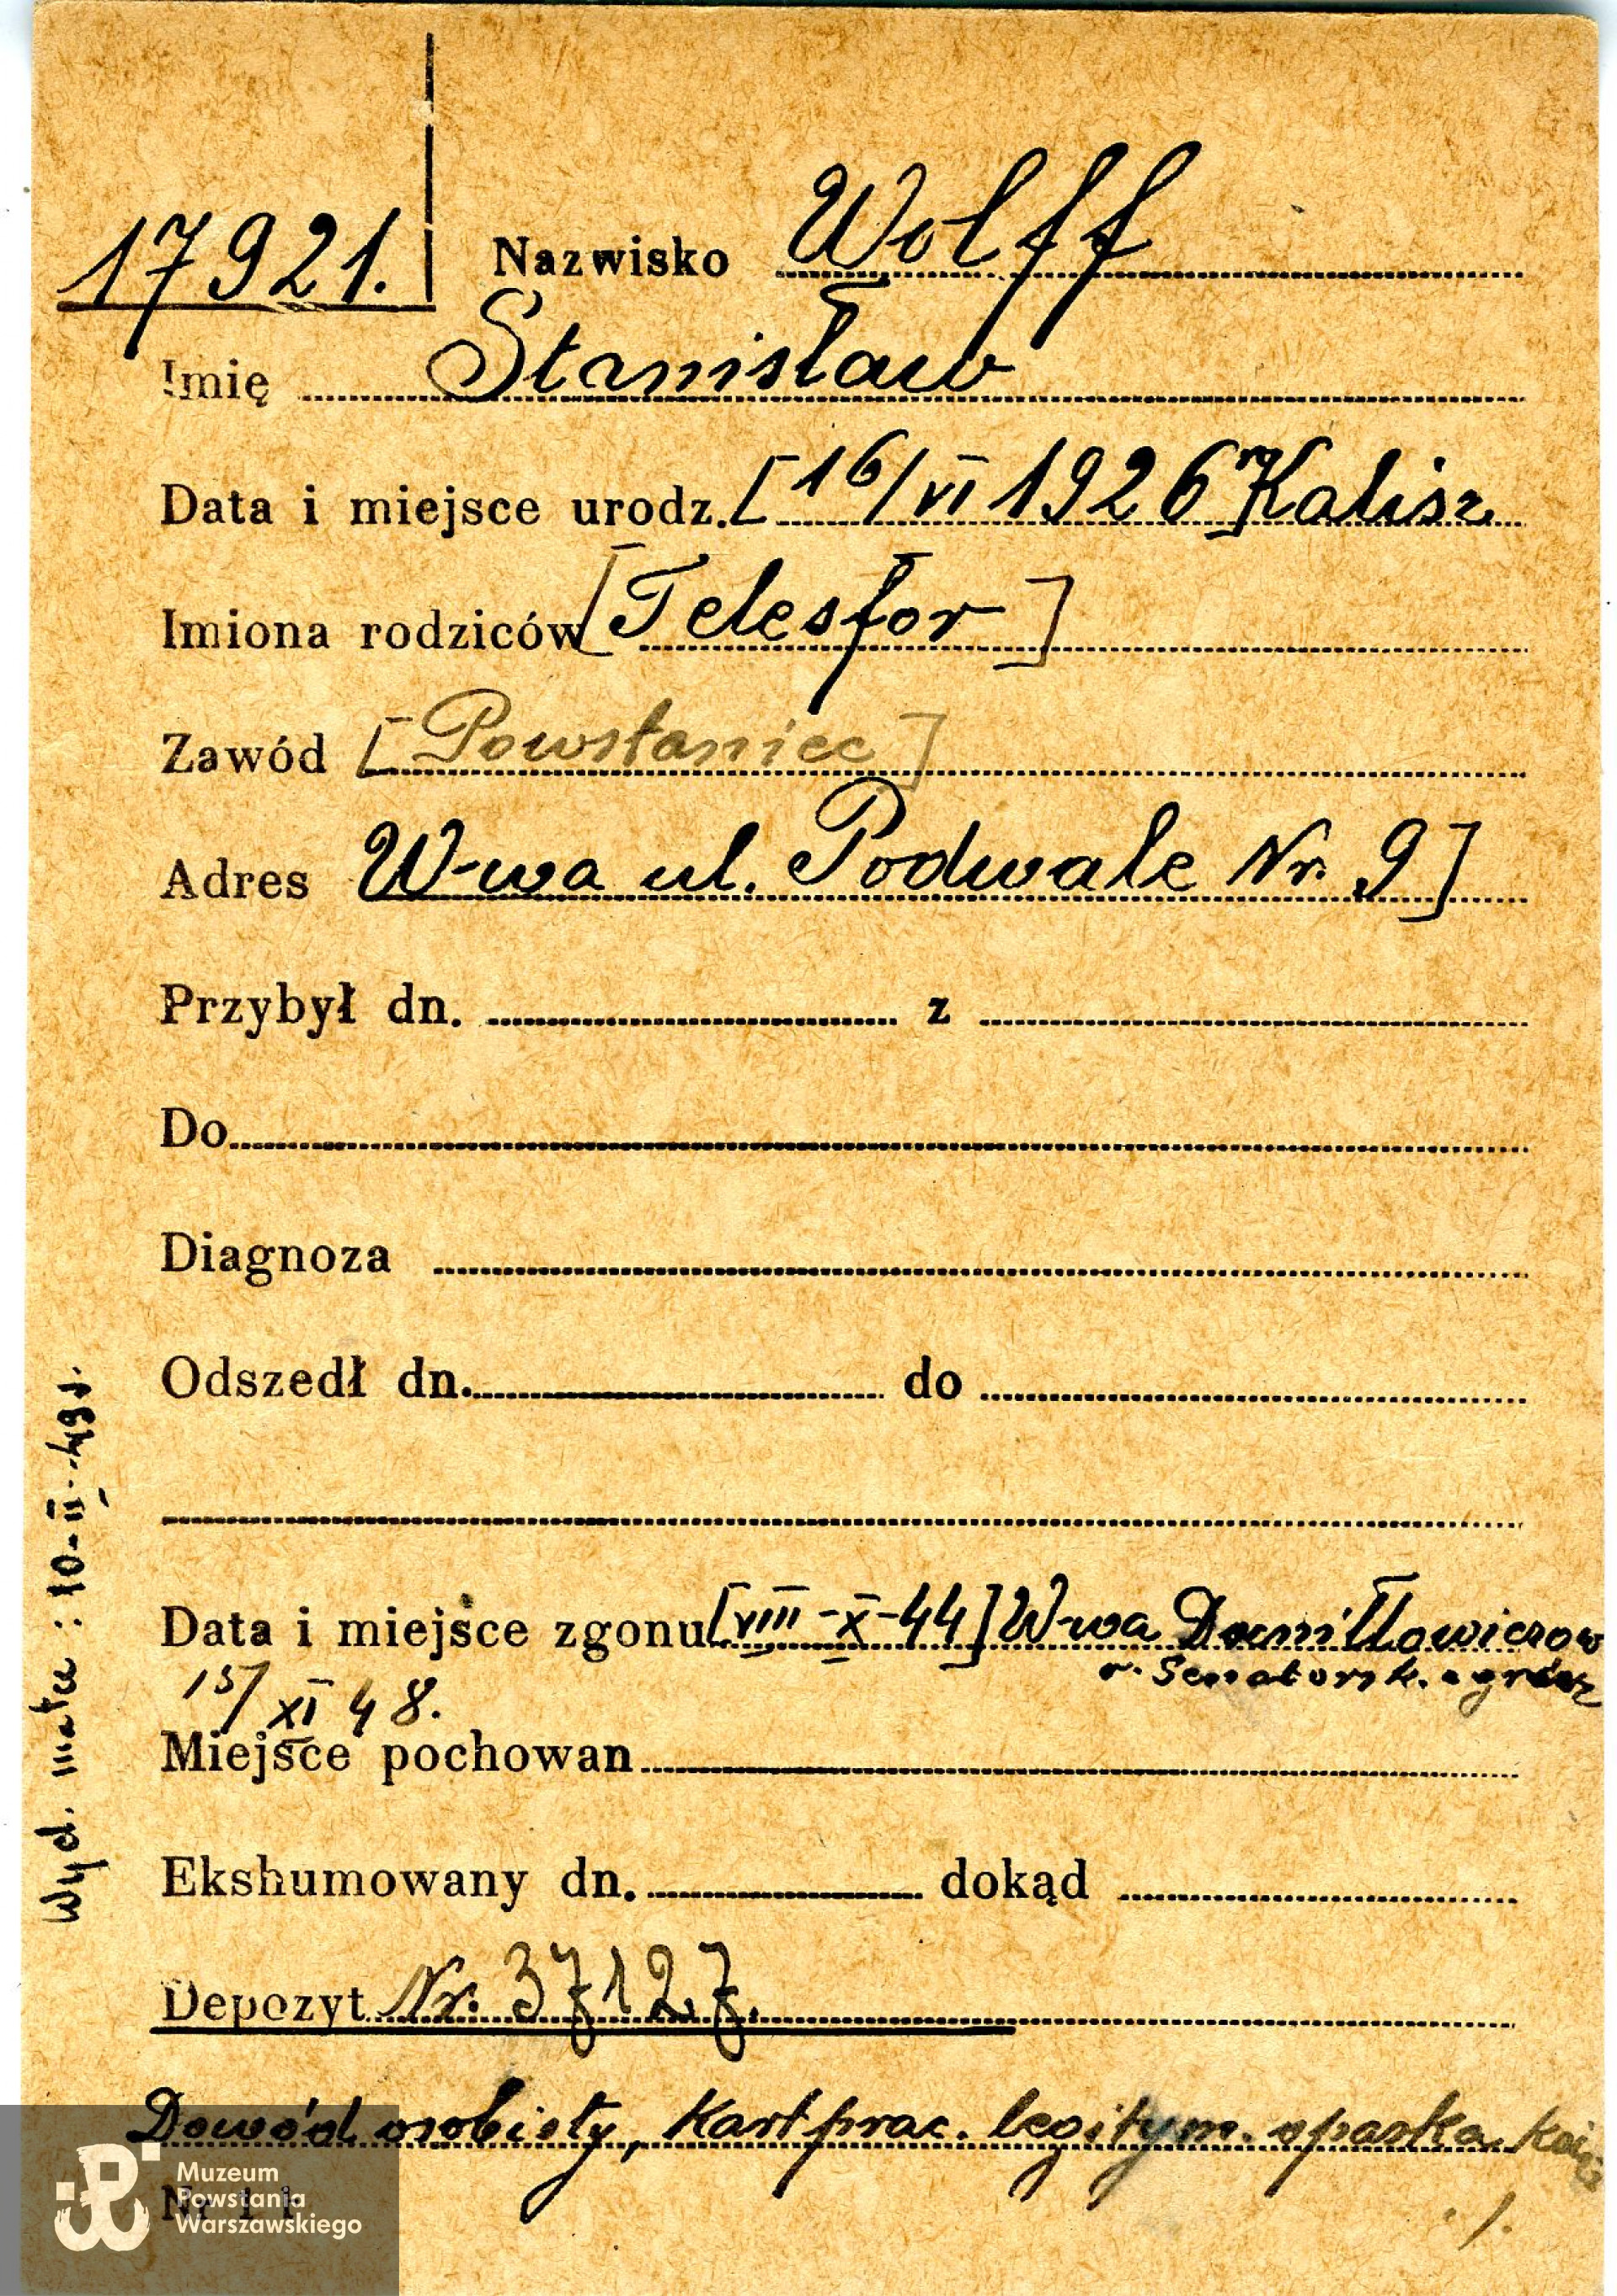 17921.
Nazwisko Wolff
Imię Stanisław
Data i miejsce urodz. [16/VI 1926 Kalisz
Imiona rodziców [Telesfor]
Zawód [Powstaniec]
Adres W-wa ul. Podwale Nr. 9]
Przybył dn. z
Do
Diagnoza
Odszedł dn. do
Data i miejsce zgonu [VIII-X-44] W-wa
r. Senatorsk.
15/XI 48.
Miejsce pochowan
Ekshumowany dn. dokąd
Depozyt Nr. 37127.
Dowód osobisty, Kart prac. legitym. opaska
Nr 11
Wyd. matce: 10-III-49 r.
Muzeum
Powstania
Warszawskiego